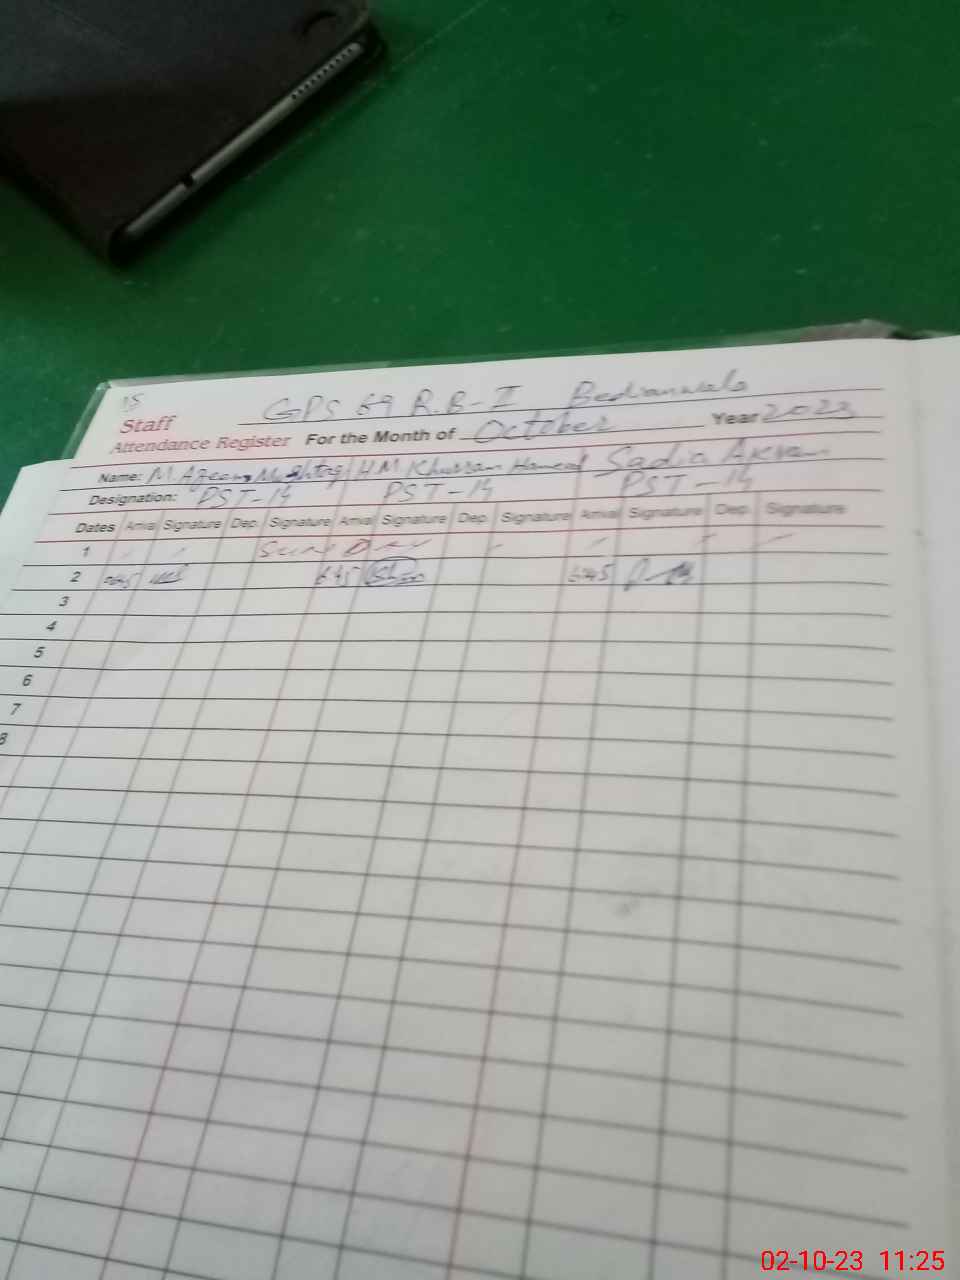 15
GPS 69 R.B-II Bedianwala
Staff
Attendance Register For the Month of October Year 2023
Name: M. Azeem Mushtaq H.M. Khurram Hameed Sadia Akram
Designation: PST-14 PST-14 PST-14
Dates Arrival Signature Dep. Signature Arrival Signature Dep. Signature Arrival Signature Dep. Signature
1 Sun Day
2 645 645
3
4
5
6
7
8
02-10-23 11:25